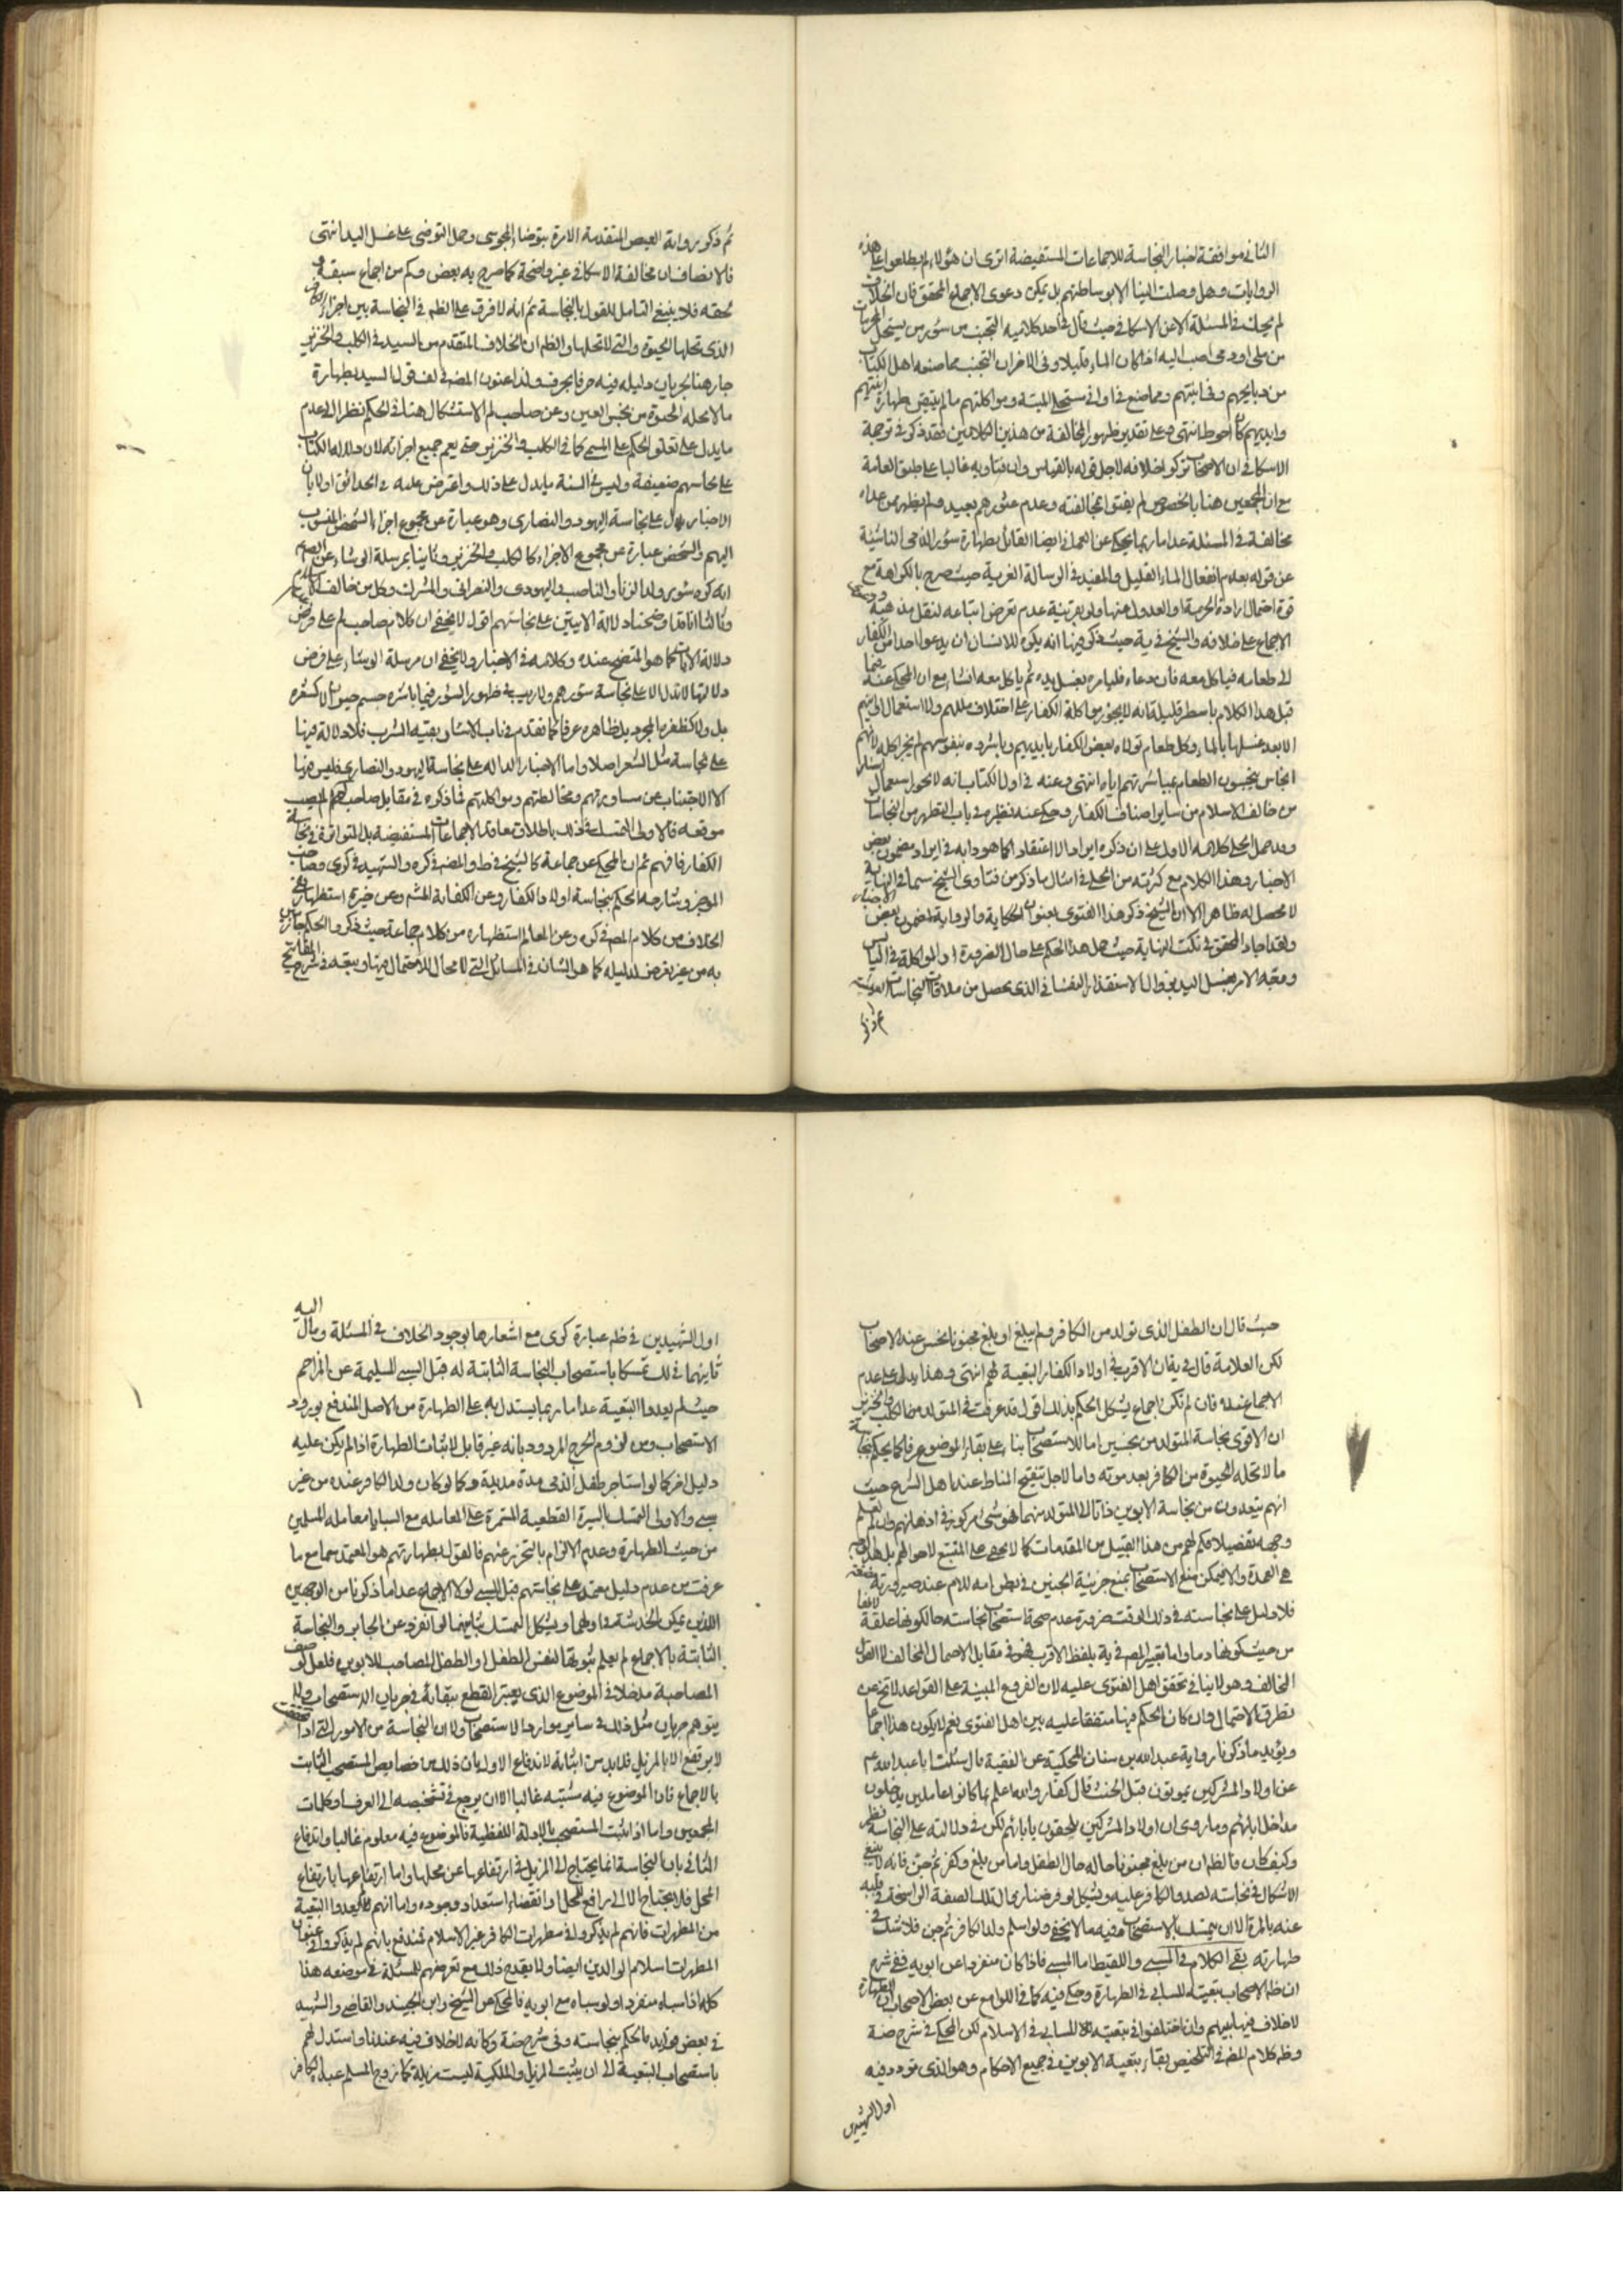 الثانى موافقة اخبار النجاسة للاجماعات المستفيضة اترى ان هؤلاء لم يطلعوا على هذه
الروايات وهل وصلت الينا الا بوساطتهم بل يمكن دعوى الاجماع المحقق فان الخلاف
لم يحك فى المسئلة الا عن الاسكافى حيث قال فى احد كلاميه التجنب من سؤر من يستحل المحرمات
من ملى او ذمى احب اليه اذا كان الماء قليلا وفى الاخر ان التجنب مما صنعه اهل الكتاب
من ذبايحهم وفى انيتهم ومما صنع فى اوانى مستحل الميتة ومواكلتهم ما لم يتيقن بطهارة انيتهم
وايديهم كان احوط انتهى وعلى تقدير ظهور المخالفة من هذين الكلامين فقد ذكر فى ترجمة
الاسكافى ان الاصحاب تركوا خلافه لاجل قوله بالقياس وان فتاويه غالبا على طبق العامة
مع ان المجمعين هنا بالخصوص لم يعتنوا بمخالفته وعدم عثورهم بعيد ولم يظهر ممن عداه
مخالفة فى المسئلة عدا ما ربما يحكى عن العمانى ايضا القائل بطهارة سؤر الذمى الناشئة
عن قوله بعدم انفعال الماء القليل والمفيد فى الرسالة الغرية حيث صرح بالكراهة مع
قوة احتمال ارادة الحرمة او العدول عنها ولو بقرينة عدم تعرض اتباعه لنقل مذهبه ودعويهم
الاجماع على خلافه والشيخ فى ية حيث ذكر فيها انه يكره للانسان ان يدعو احدا من الكفار
الى طعامه فياكل معه فان دعاه فليامره بغسل يده ثم ياكل معه انشاء مع ان المحكى عنه فيها
قبل هذا الكلام باسطر قليلة انه لا يجوز مواكلة الكفار على اختلاف مللهم ولا استعمال اوانيهم
الا بعد غسلها بالماء وكل طعام تولاه بعض الكفار بايديهم وباشروه بنفوسهم لم يجز اكله لانهم
انجاس ينجسون الطعام بمباشرتهم اياه انتهى وعنه فى اول الكتاب انه لا يجوز استعمال اسئار
من خالف الاسلام من ساير اصناف الكفار وحكى عنه نظيره فى باب التطهر من النجاسات
وقد حمل الحلى كلامه الاول على ان ذكره ايرادا لا اعتقادا كما هو دابه فى ايراد مضمون بعض
الاخبار وهذا الكلام مع كثرته من الحلى فى امثال ما ذكر من فتاوى الشيخ سيما فى النهاية
لا محصل له ظاهرا الا ان الشيخ ذكر هذا الفتوى بعنوان الحكاية والرواية لمضمون بعض الاخبار
ولقد اجاد المحقق فى نكت النهاية حيث حمل هذا الحكم على حال الضرورة او المواكلة فى اليابس
وجه الامر بغسل اليد بزوال الاستقذار النفسانى الذى يحصل من ملاقات النجاسات العينية
ثم ذكر
ثم ذكر رواية العيص المتقدمة الامرة بتوضأ المجوسى وحمل التوضى على غسل اليد انتهى
فالانصاف ان مخالفة الاسكافى غير واضحة كما صرح به بعض وكم من اجماع سبقه او
لحقه فلا ينبغى التامل للقول بالنجاسة ثم انه لا فرق على الظهر فى النجاسة بين اجزاء الكافر
الذى تحلها الحيوة والتى لا تحلها والظم ان الخلاف المتقدم من السيد فى الكلب والخنزير
جار هنا لجريان دليله فيه حرفا بحرف ولذا عنون المص فى لف قول السيد بطهارة
ما لا تحله الحيوة من نجس العين وعن صاحب لم الاستشكال هنا فى الحكم نظرا الى عدم
ما يدل على تعلق الحكم على المسمى كما فى الكلب والخنزير حتى يعم جميع اجزائه لان دلالة الكتاب
على نجاستهم ضعيفة وليس فى السنة ما يدل على ذلك واعترض عليه فى الحدائق اولا بان
الاخبار دل على نجاسة اليهود والنصارى وهو عبارة عن مجموع اجزاء الشخص المنسوب
اليهم والشخص عبارة عن مجموع الاجزاء كالكلب والخنزير وثانيا بمرسلة الوشاء عن الصم
انه كره سؤر ولد الزنا والناصب واليهودى والنصرانى والمشرك وكل من خالف الاسلام
وثالثا اناقد اوضحنا دلالة الايتين على نجاستهم اقول لا يخفى ان كلام صاحب لم على فرض
دلالة الايات كما هو المتضح عنده وكلامه فى الاخبار ولا يخفى ان مرسلة الوشاء على فرض
دلالتها لا تدل الا على نجاسة سؤرهم ولا ريب فى ظهور السؤر فيما باشره جسم حيوان لا كشعره
بل ولا كظفره المجرد بل ظاهره عرفا كما تقدم فى باب الاسئار بقية الشرب فلا دلالة فيها
على نجاسة مثل الشعر اصلا واما الاخبار الدالة على نجاسة اليهود والنصارى فليس فيها
الا الاجتناب عن مساورتهم ومخالطتهم ومواكلتهم فما ذكره فى مقابل صاحب لم لم يصب
موقعه فالاولى التمسك فى ذلك باطلاق معاقد الاجماعات المستفيضة بل المتواترة فى نجاسة
الكفار فافهم ثم ان المحكى عن جماعة كالشيخ فى ط والمص فى كره والشهيد فى كرى وصاحب
الموجز وشارحه الحكم بنجاسة اولاد الكفار وعن الكفاية المشه وعن خيرة استظهار نفى
الخلاف من كلام المص فى كره وعن المعالم استظهاره من كلام جماعة حيث ذكروا الحكم جازمين
به من غير تعرض لدليله كما هو الشان فى المسائل التى لا مجال للاحتمال فيها وتبعه فى شرح المفاتيح
حيث قال ان الطفل الذى تولد من الكافر ولم يبلغ او بلغ مجنونا نجس عند الاصحاب
لكن العلامة قال فى ية ان الاقرب فى اولاد الكفار التبعية لهم انتهى وهذا يدل على عدم
الاجماع عنده فان لم تكن اجماع يشكل الحكم بذلك اقول قد عرفت فى المتولد من الكلب والخنزير
ان الاقوى نجاسة المتولد من نجسين اما للاستصحاب بناء على بقاء الموضوع عرفا كما يحكم بنجاسة
ما لا تحله الحيوة من الكافر بعد موته واما لاجل تنقيح المناط عند اهل الشرع حيث
انهم يتعدون من نجاسة الابوين ذاتا الى المتولد منهما فهو شئ مركوز فى اذهانهم وان لم نعلم
وجهه تفصيلا فكم لهم من هذا القبيل من المقدمات كما لا يخفى على المتتبع لاحوالهم بل هذا
هى العمدة والا فيمكن منع الاستصحاب بمنع جزئية الجنين فى بطن امه للام عند صيرورته مضغة
فلا دليل على نجاسته فى ذلك الوقت ضرورة عدم صحة استصحاب نجاسته حال كونها علقة لانها
من حيث كونها دما واما تعبير المص فى ية بلفظ الاقرب فهو فى مقابل الاحتمال المخالف لا القول
المخالف وهو لا ينافى تحقق اهل الفتوى عليه لان الفروع المبنية على القواعد لا تخ عن
تطرق الاحتمال وان كان الحكم فيها متفقا عليه بين اهل الفتوى نعم لا يكون هذا اجماعا
ويؤيد ما ذكرنا رواية عبد الله بن سنان المحكية عن الفقيه قال سئلت ابا عبد الله عم
عن اولاد المشركين يموتون قبل الحنث قال كفار والله اعلم بما كانوا عاملين يدخلون
مداخل ابائهم وما روى ان اولاد المشركين ملحقون بابائهم لكن فى دلالته على النجاسة نظر
وكيف كان فالظم ان من بلغ مجنونا حاله حال الطفل واما من بلغ وكفر ثم جن فانه لا ينبغى
الاشكال فى نجاسته لصدق الكافر عليه ويشكل لو فرضنا زوال تلك الصفة الراسخة فى قلبه
عنه بالمرة الا ان يتمسك بالاستصحاب وفيه ما لا يخفى ولو اسلم ولد الكافر ثم جن فلا شك فى
طهارته بقى الكلام فى المسبى واللقيط اما المسبى فاذا كان منفردا عن ابويه ففى شرح
ان ظ الاصحاب تبعيته للسابى فى الطهارة وحكى فيه كما فى اللوامع عن بعض الاصحاب ان الطهارة
لا خلاف فيها بينهم وان اختلفوا فى تبعيته للسابى فى الاسلام لكن المحكى فى شرح ضة
وظم كلام المص فى التلخيص بقاء تبعية الابوين فى جميع الاحكام وهو الذى تردد فيه
اول الشهيدين
اول الشهيدين فى ظم عبارة كرى مع اشعارها بوجود الخلاف فى المسئلة ومال اليه
ثانيهما فى لك تمسكا باستصحاب النجاسة الثابتة له قبل السبى السليمة عن المزاحم
حيث لم يعدوا التبعية عدا ما ربما يستدل به على الطهارة من الاصل المندفع بورود
الاستصحاب ومن لزوم الحرج المردود بانه غير قابل لاثبات الطهارة اذا لم يكن عليه
دليل اخر كما لو استاجر طفل الذمى مدة مديدة وكما لو كان ولد الكافر عنده من غير
سبى والاولى التمسك بالسيرة القطعية المستمرة على المعاملة مع السبايا معاملة المسلمين
من حيث الطهارة وعدم الالتزام بالتحرز عنهم فالقول بطهارتهم هو المعتمد سيما مع ما
عرفت من عدم دليل معتمد على نجاستهم قبل السبى لولا الاجماع عدا ما ذكرنا من الوجهين
اللذين يمكن الخدشة فى اولهما ويشكل التمسك بثانيهما لو انفرد عن الجابر والنجاسة
الثابتة بالاجماع لم يعلم ثبوتها لنفس الطفل او الطفل المصاحب للابوين فلعل لوصف
المصاحبة مدخلا فى الموضوع الذى يعتبر القطع ببقائه فى جريان الاستصحاب ولا
يتوهم جريان مثل ذلك فى ساير موارد الاستصحاب ولا ان النجاسة من الامور التى اذا تحققت
لا يرتفع الا بالمزيل فلا بد من اثباته لاندفاع الاول بان ذلك من خصايص المستصحب الثابت
بالاجماع فان الموضوع فيه مشتبه غالبا الا ان يرجع فى تشخيصه الى العرف او كلمات
المجمعين واما اذا ثبت المستصحب بالادلة اللفظية فالموضوع فيه معلوم غالبا واندفاع
الثانى بان النجاسة انما يحتاج الى المزيل فى ارتفاعها عن محلها واما ارتفاعها بارتفاع
المحل فلا يحتاج الا الى رافع المحل او انقضاء استعداد وجوده واما انهم لم يعدوا التبعية
من المطهرات فانهم لم يذكروا فى مطهرات الكافر غير الاسلام فمندفع بانهم لم يذكروا فى عنوان
المطهرات اسلام الوالدين ايضا ولا يقدح ذلك مع تعرضهم للمسئلة فى موضعه هذا
كله اذا سباه منفردا ولو سباه مع ابويه فالمحكى عن الشيخ وابن الجنيد والقاضى والشهيد
فى بعض فوايده الحكم بنجاسته وفى شرح ضة وكانه لا خلاف فيه عندنا واستدل لهم
باستصحاب التبعية الى ان يثبت المزيل والملكية ليست مزيلة كما لو زوج المسلم عبده الكافر